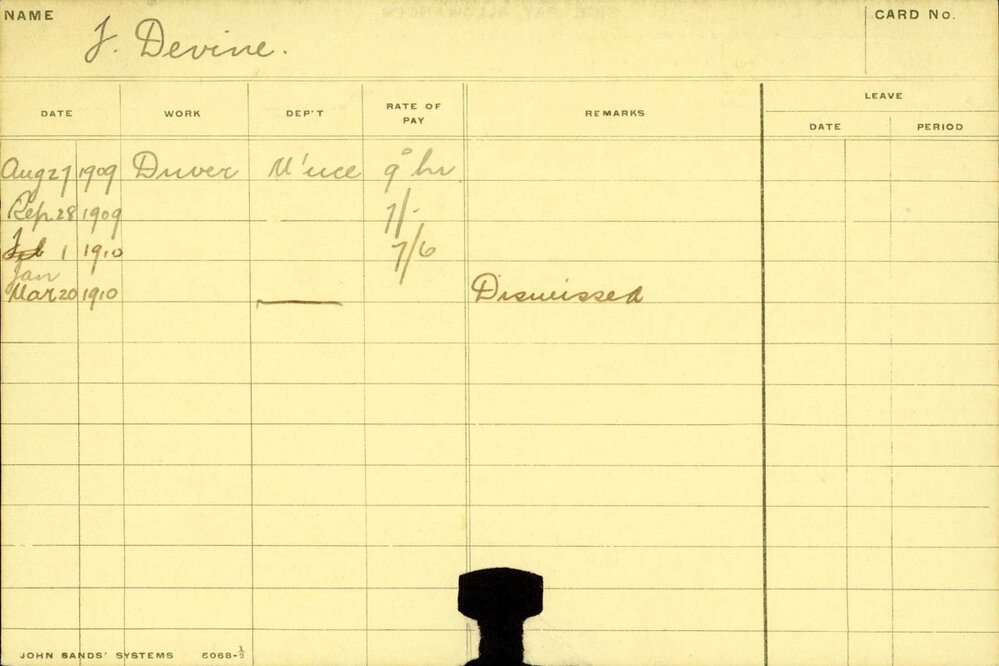 NAME J. Devine. CARD No.
LEAVE
DATE WORK DEP'T RATE OF PAY REMARKS DATE PERIOD
Aug 27 1909 Driver M'nce 9ᵈ hr
Sep. 28 1909 7/-
Feb 1 1910 7/6
Jan
Mar 20 1910 Dismissed
JOHN SANDS' SYSTEMS 5068-½